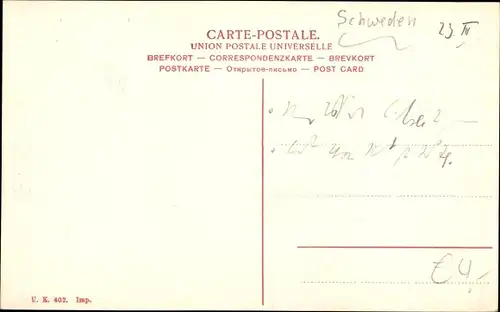 Schweden
CARTE-POSTALE.
UNION POSTALE UNIVERSELLE
BREFKORT — CORRESPONDENZKARTE — BREVKORT
POSTKARTE — Открытое-письмо — POST CARD
€ 4,-
U. K. 402. Imp.